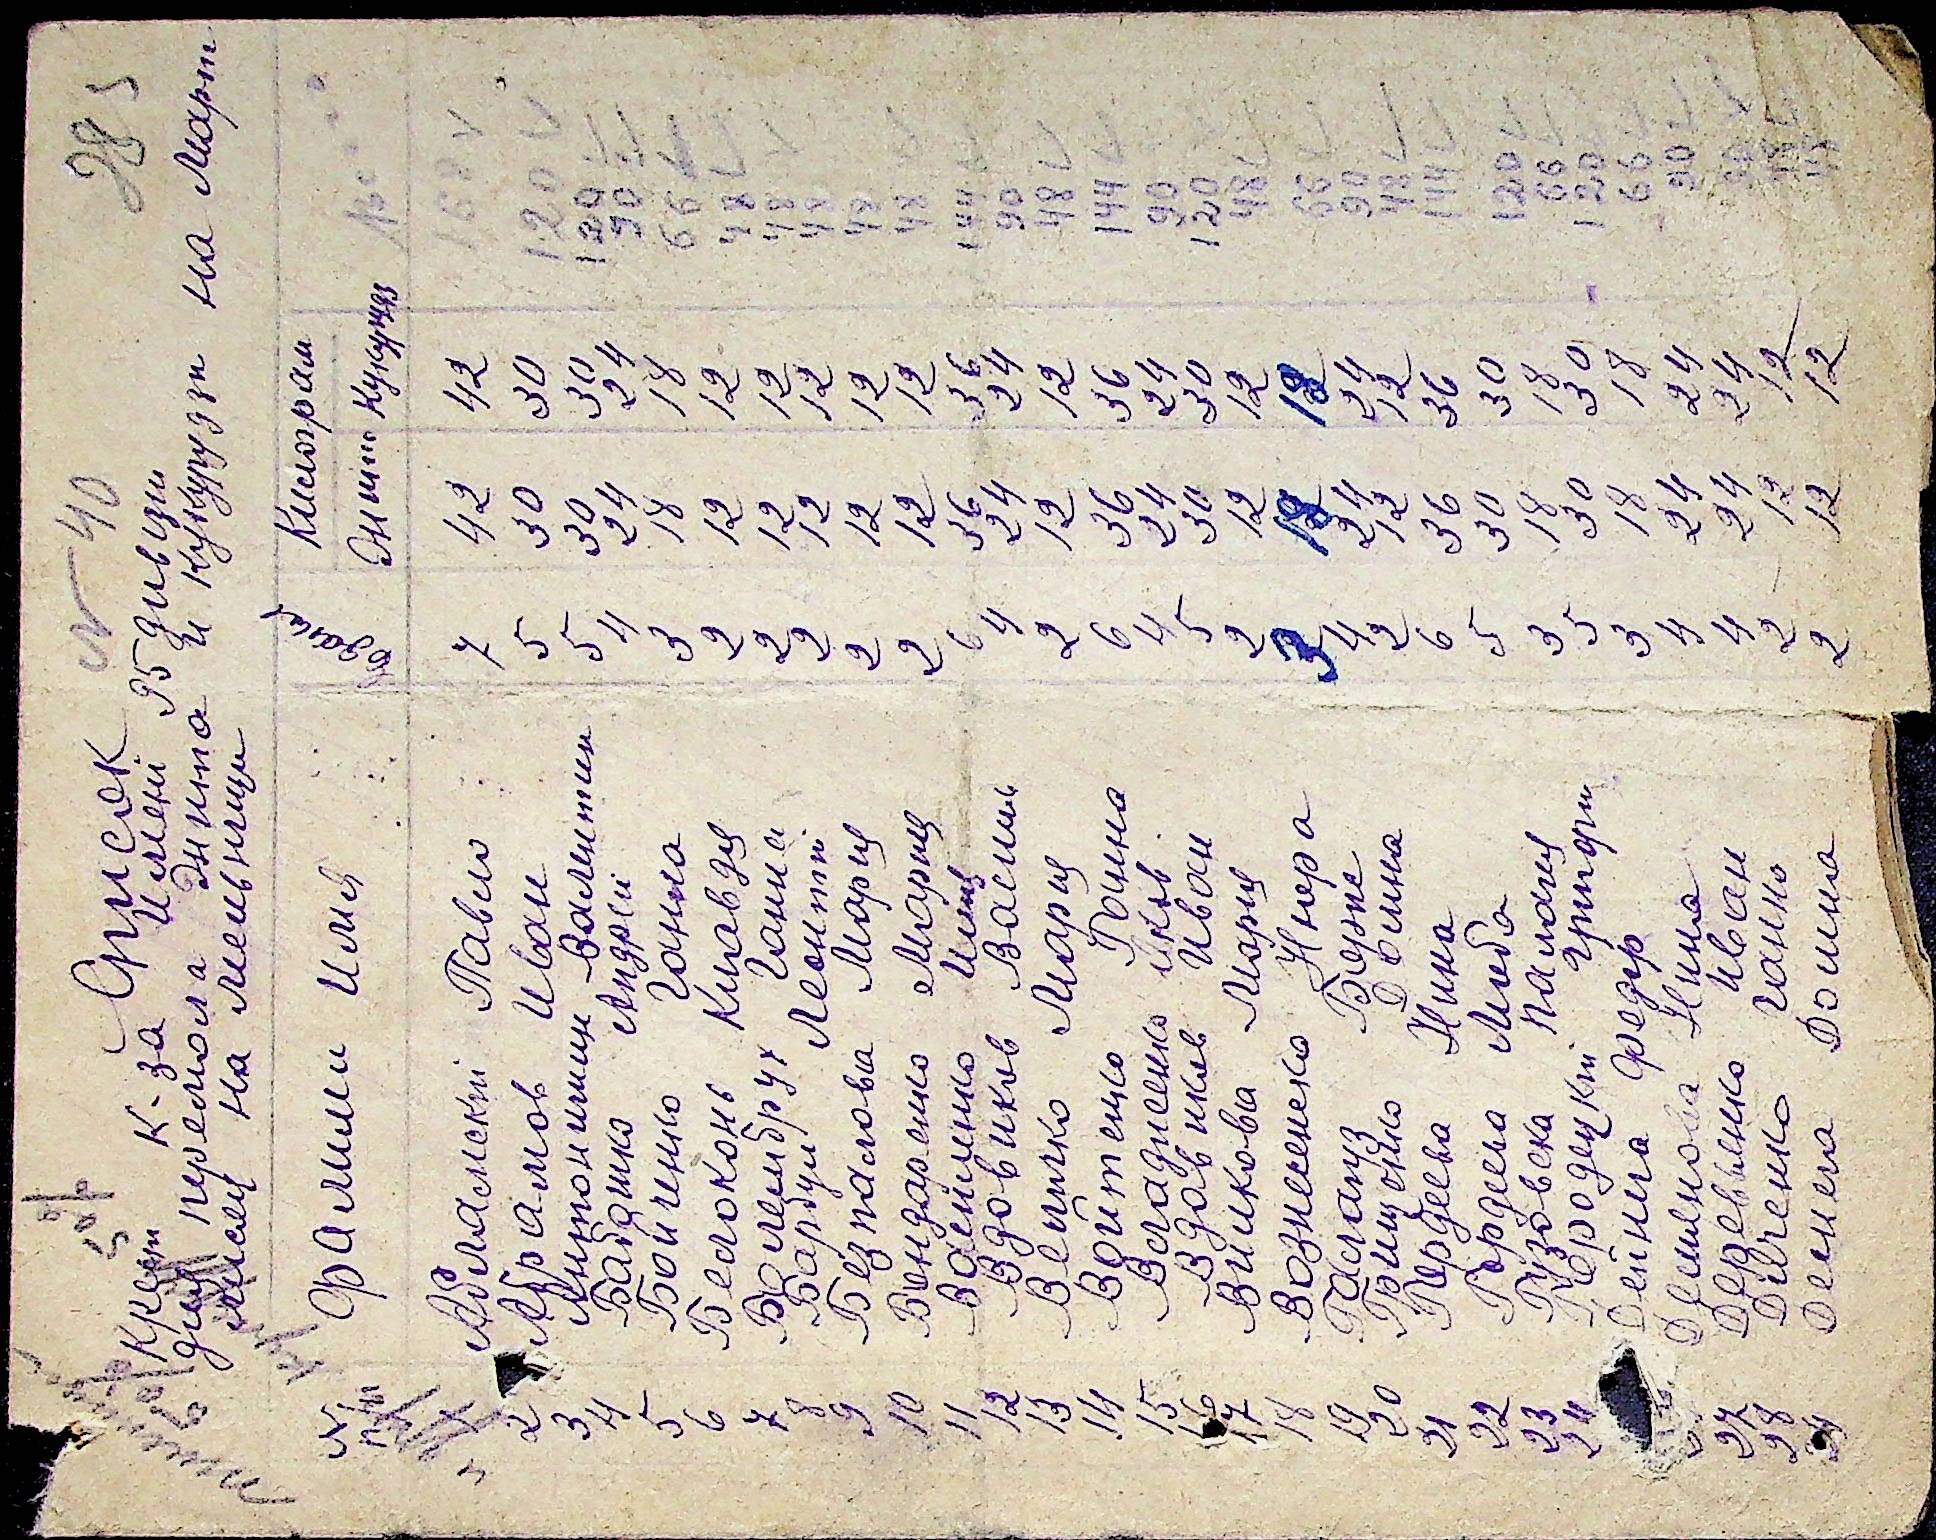 № 40
28
Список
Крест к-за Имени 95 дивизи
для перемола жита и кукурудзи на март
месяц на мельници
5%
5%
№ п/п Фамили Имя Едаци Килограм
Жит. Кукурудз
Абламскі Павло 7 42 42 168
2 Абрамов Иван 5 30 30 120
3 Антонишин Валентин 5 30 30 120
4 Бабшко Андреі 4 24 24 90
5 Бойченко Ганна 3 18 18 66
6 Белоконь Клавдия 2 12 12 48
7 Балембрух Ганна 2 12 12 48
8 Барбул Леонти 2 12 12 48
9 Безпалова Мария 2 12 12 48
10 Бондаренко Мария 2 12 12 48
11 Василенко Илия 6 36 36 144
12 Вдовиков Василь 4 24 24 90
13 Величко Мария 2 12 12 48
14 Войтенко Ганна 6 36 36 144
15 Владиенко Яків 4 24 24 90
16 Вдовиков Иван 5 30 30 120
17 Виликова Мария 2 12 12 48
18 Вознаенско Нюра 3 18 18 66
19 Галагуз 4 24 24 90
20 Грищенко Домна 2 12 12 48
21 Гордеева Нина 6 36 36 144
22 Гордеева Люба 5 30 30 120
23 Гузовска Палагия 3 18 18 66
24 Городецкі Григори 5 30 30 120
Дейнига Федор 3 18 18 66
Демидова Нина 4 24 24 90
27 Деревьенко Иван 4 24 24 90
28 Дійченко Ганна 2 12 12 48
29 Демена Домна 2 12 12 48